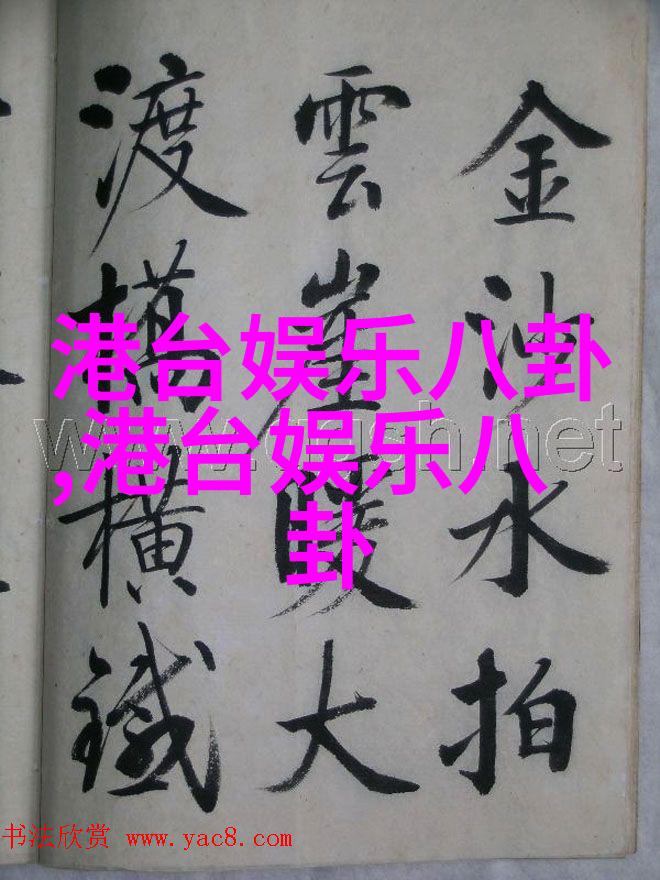 金沙水拍
雲崖暖大
渡橋橫鐵
港台娱乐八卦
,港台娱乐八
卦
书法欣赏 www.yac8.com